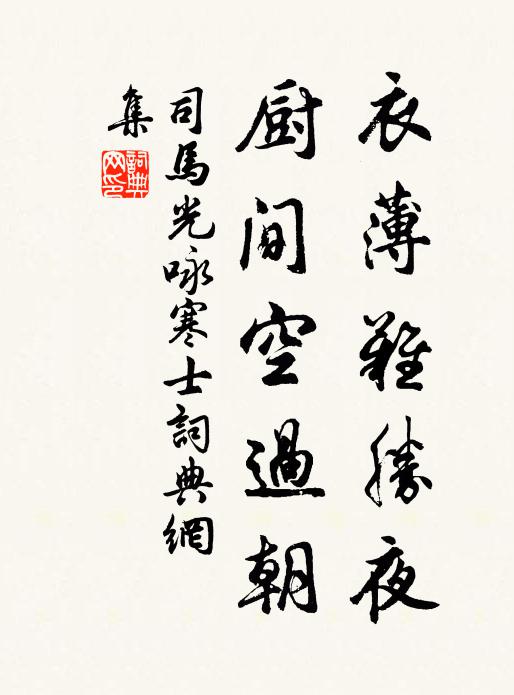 衣薄難勝夜
厨间空過朝
司馬光咏寒士詞典網
集
詞典
网印